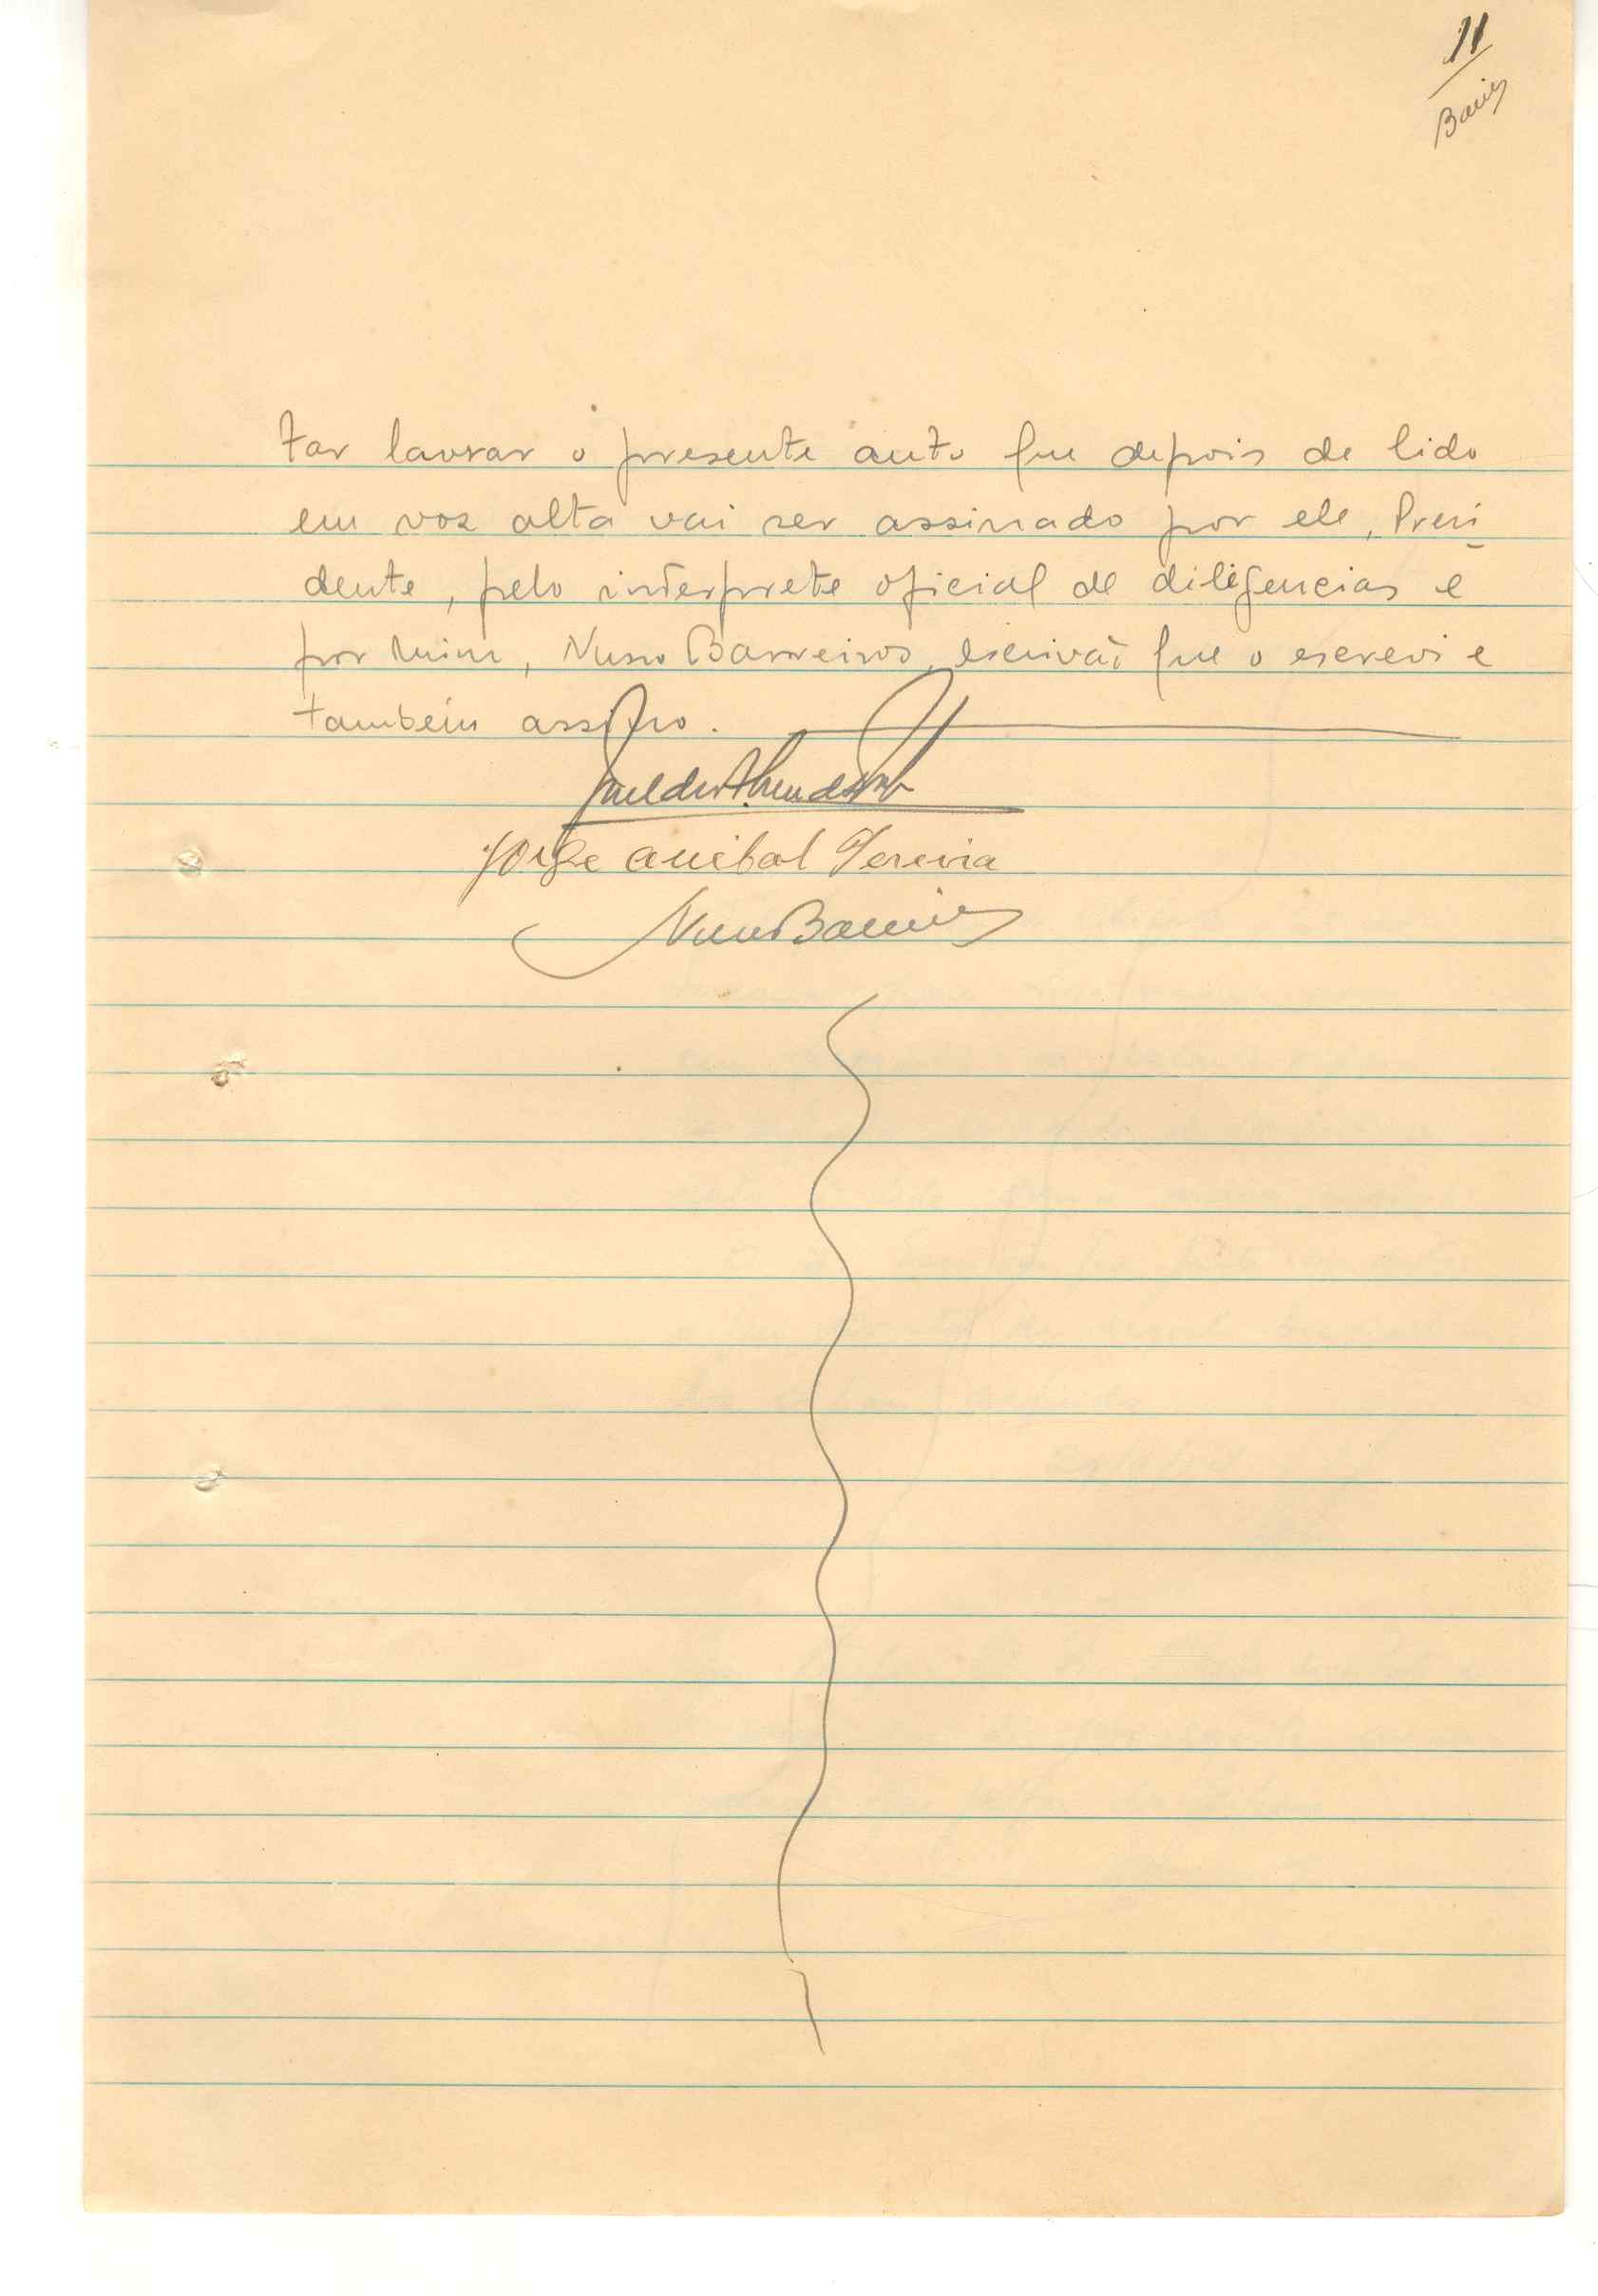 11
tar lavrar o presente auto que depois de lido
em voz alta vai ser assinado por ele, Presi
dente, pelo interprete oficial de diligencias e
por mim, Nuno Barreiros, escrivão que o escrevi e
também assino.
Jorge Anibal Pereira
Nuno Barreiros